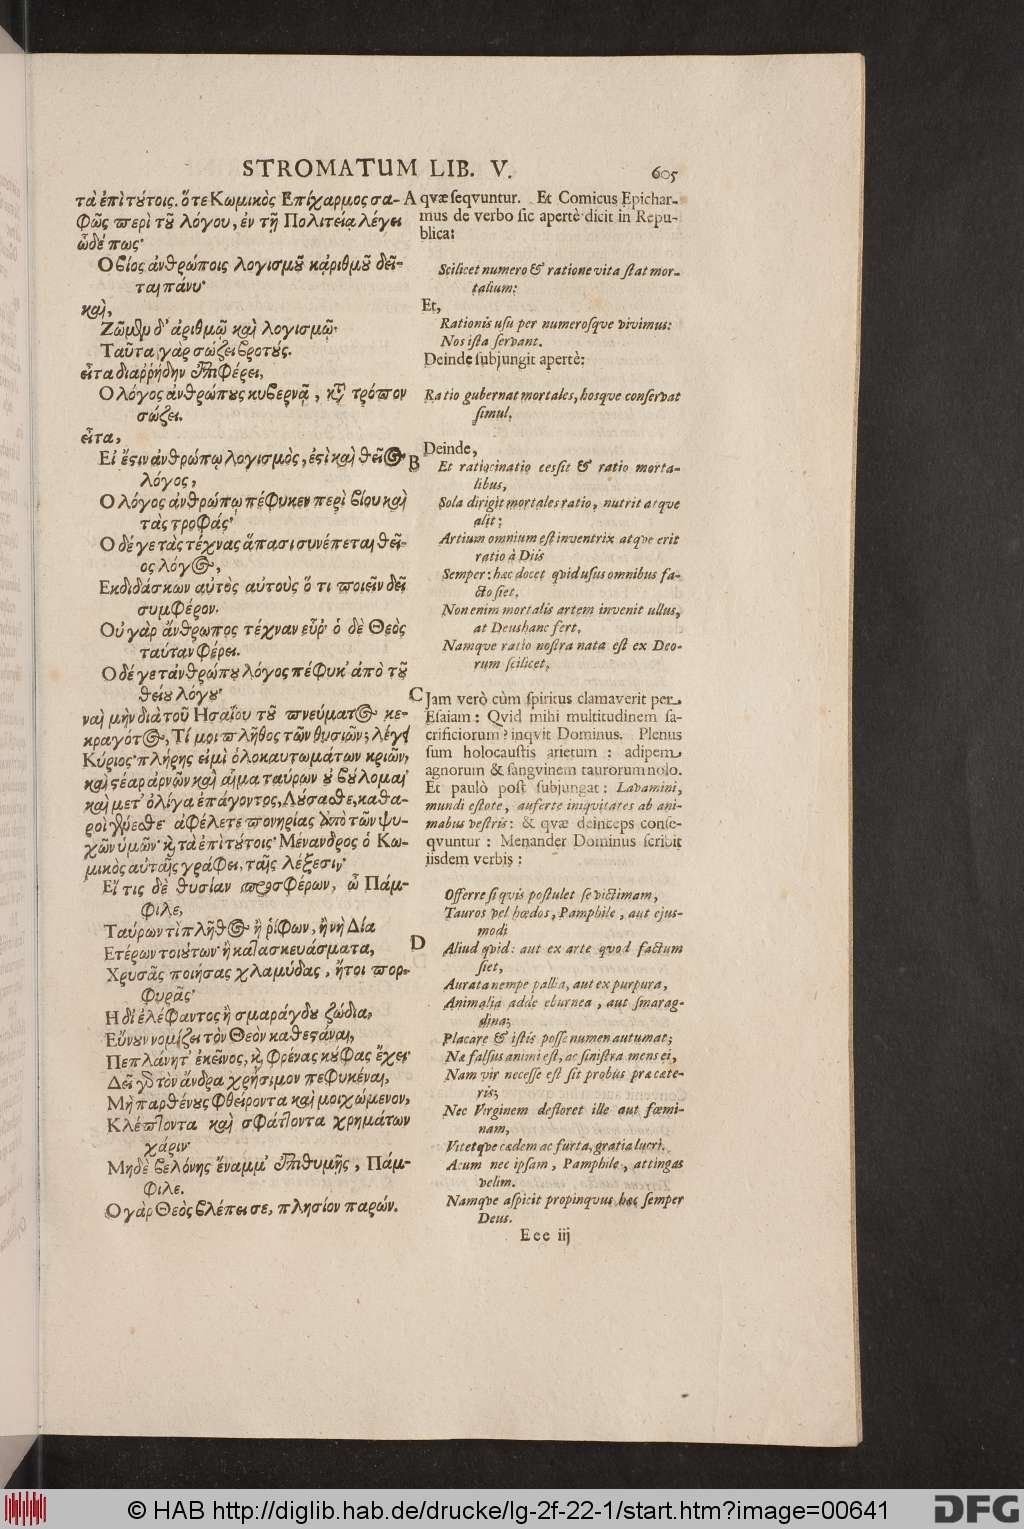 STROMATUM LIB. V. 605
τὰ ἐπὶ τȣ́τοις. ὅτε Κωμικὸς Επίχαρμος σα-
φῶς περὶ τȣ͂ λόγου, ἐν τῇ Πολιτείᾳ λέγει
ὧδέ πως·
Ο βίος ἀνθρώποις λογισμȣ͂ κᾀριθμȣ͂ δεῖ-
ται πάνυ·
καὶ,
Ζῶμεν δ' ἀριθμῷ καὶ λογισμῷ·
Ταῦτα γὰρ σώζει βροτȣ́ς.
εἶτα διαῤῥήδην ἐπιφέρει,
Ο λόγος ἀνθρώπȣς κυβερνᾷ, κτ τρόπον
σώζει.
εἶτα,
Εἰ ἔστιν ἀνθρώπῳ λογισμὸς, ἐστὶ καὶ θεῖος
λόγος,
Ο λόγος ἀνθρώπῳ πέφυκεν περὶ βίου καὶ
τὰς τροφάς·
Ο δέ γε τὰς τέχνας ἅπασι συνέπεται θεῖ-
ος λόγος,
Εκδιδάσκων αὐτὸς αὐτοὺς ὅ τι ποιεῖν δεῖ
συμφέρον.
Οὐ γὰρ ἄνθρωπος τέχναν εὗρ' ὁ δὲ Θεὸς
ταύταν φέρει.
Ο δέ γε τἀνθρώπȣ λόγος πέφυκ' ἀπὸ τȣ͂
θείȣ λόγȣ·
ναὶ μὴν διὰ τοῦ Ησαΐου τȣ͂ πνεύματος κε-
κραγότος, Τί μοι πλῆθος τῶν θυσιῶν; λέγει
Κύριος· πλήρης εἰμὶ ὁλοκαυτωμάτων κριῶν,
καὶ στέαρ ἀρνῶν καὶ αἷμα ταύρων ȣ̓ βȣ́λομαι·
καὶ μετ' ὀλίγα ἐπάγοντος, Λύσασθε, καθα-
ροὶ γένεσθε· ἀφέλετε πονηρίας ἀπὸ τῶν ψυ-
χῶν ὑμῶν· κ̀ τὰ ἐπὶ τύτοις· Μένανδρος ὁ Κω-
μικὸς αὐταῖς γράφει, ταῖς λέξεσιν·
Εἴ τις δὲ θυσίαν προσφέρων, ὦ Πάμ-
φιλε,
Ταύρων τὶ πλῆθος ἢ ῥίφων, ἢ νὴ Δία
Ετέρων τοιȣ́των· ἢ κατασκευάσματα,
Χρυσᾶς ποιήσας χλαμύδας, ἤτοι πορ-
φυρᾶς·
Η δι' ἐλέφαντος ἢ σμαράγδȣ ζώδια,
Εὔνουν νομίζει τὸν Θεὸν καθεστάναι,
Πεπλάνητ' ἐκεῖνος, κ̀ φρένας κȣ́φας ἔχει·
Δεῖ γὸ τὸν ἄνδρα χρήσιμον πεφυκέναι,
Μὴ παρθένȣς φθείροντα καὶ μοιχώμενον,
Κλέπτοντα καὶ σφάττοντα χρημάτων
χάριν·
Μηδὲ βελόνης ἔναμμ' ἐπιθυμῇς, Πάμ-
φιλε.
Ο γὰρ Θεὸς βλέπει σε, πλησίον παρών.
A qvæ seqvuntur. Et Comicus Epichar-
mus de verbo sic apertè dicit in Repu-
blica:
Scilicet numero & ratione vita stat mor-
talium:
Et,
Rationis usu per numerosqve vivimus:
Nos ista servant.
Deinde subjungit apertè:
Ratio gubernat mortales, hosqve conservat
simul,
Deinde,
B
Et ratiocinatio cessit & ratio morta-
libus,
Sola dirigit mortales ratio, nutrit atqve
alit;
Artium omnium est inventrix atqve erit
ratio à Diis
Semper: hæc docet qvid usus omnibus fa-
cto siet.
Non enim mortalis artem invenit ullus,
at Deus hanc fert.
Namqve ratio nostra nata est ex Deo-
rum scilicet.
C Jam verò cùm spiritus clamaverit per
Esaiam: Qvid mihi multitudinem sa-
crificiorum? inqvit Dominus. Plenus
sum holocaustis arietum: adipem
agnorum & sangvinem taurorum nolo.
Et paulò post subjungat: Lavamini,
mundi estote, auferte iniqvitates ab ani-
mabus vestris: & qvæ deinceps conse-
qvuntur: Menander Dominus scribit
iisdem verbis:
Offerre si qvis postulet se victimam,
Tauros vel hœdos, Pamphile, aut ejus-
modi
D Aliud qvid: aut ex arte qvod factum
siet,
Aurata nempe pallia, aut ex purpura,
Animalia adde eburnea, aut smarag-
dina;
Placare & istis posse numen autumat;
Næ falsus animi est, ac sinistra mens ei,
Nam vir necesse est sit probus præcæte-
ris;
Nec Virginem defloret ille aut fœmi-
nam,
Vitetqve cædem ac furta, gratia lucri,
Acum nec ipsam, Pamphile, attingas
velim.
Namqve aspicit propinqvus hæc semper
Deus.
Eee iij
© HAB http://diglib.hab.de/drucke/lg-2f-22-1/start.htm?image=00641
DFG